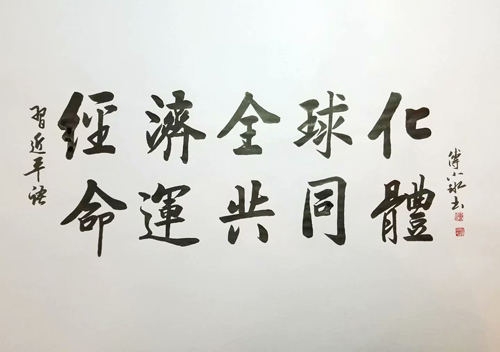 習近平語
經濟全球化
命運共同體
傅小书